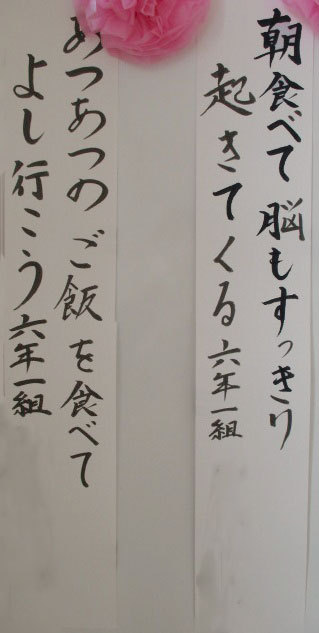 朝食べて脳もすっきり
起きてくる 六年一組
あつあつのご飯を食べて
よし行こう 六年一組